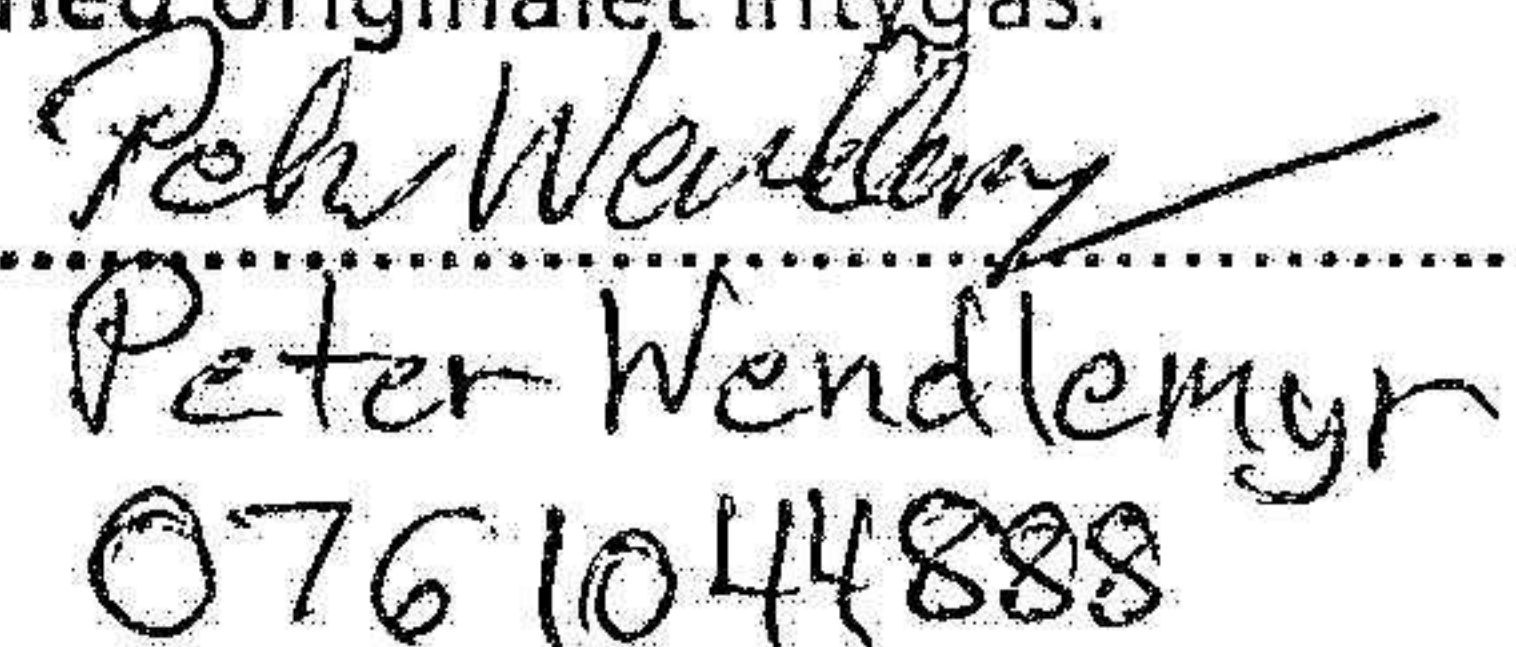 med originalet intygas.
Peter Wendlemyr
Peter Wendlemyr
0761044888